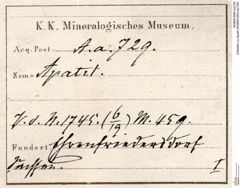 K. K. Mineralogisches Museum.
Acq. Post A. a. 729.
Name Apatit.
J. d. N. 1745. (6/19) M. 459.
Fundort Ehrenfriedersdorf
Sachsen. I